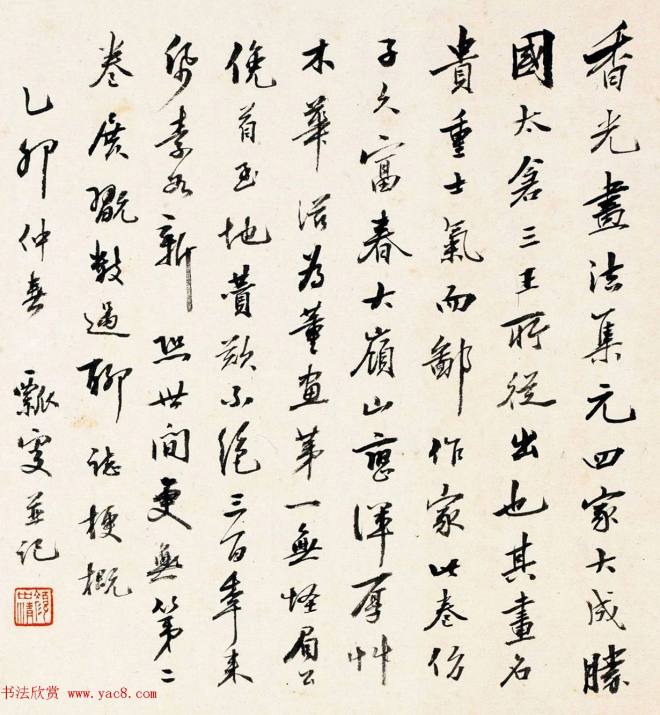 香光畫法集元四家大成勝
國太倉三王所從出也其畫名
貴重士氣而鄙作家此卷仿
子久富春大嶺山渾厚艸
木華滋為董畫第一無怪眉公
俛首至地贊歎不絕三百年來
紙素如新恐世間更無第二
卷展翫數過聊誌梗概
乙卯仲春 瓢叟並記
书法欣赏 www.yac8.com